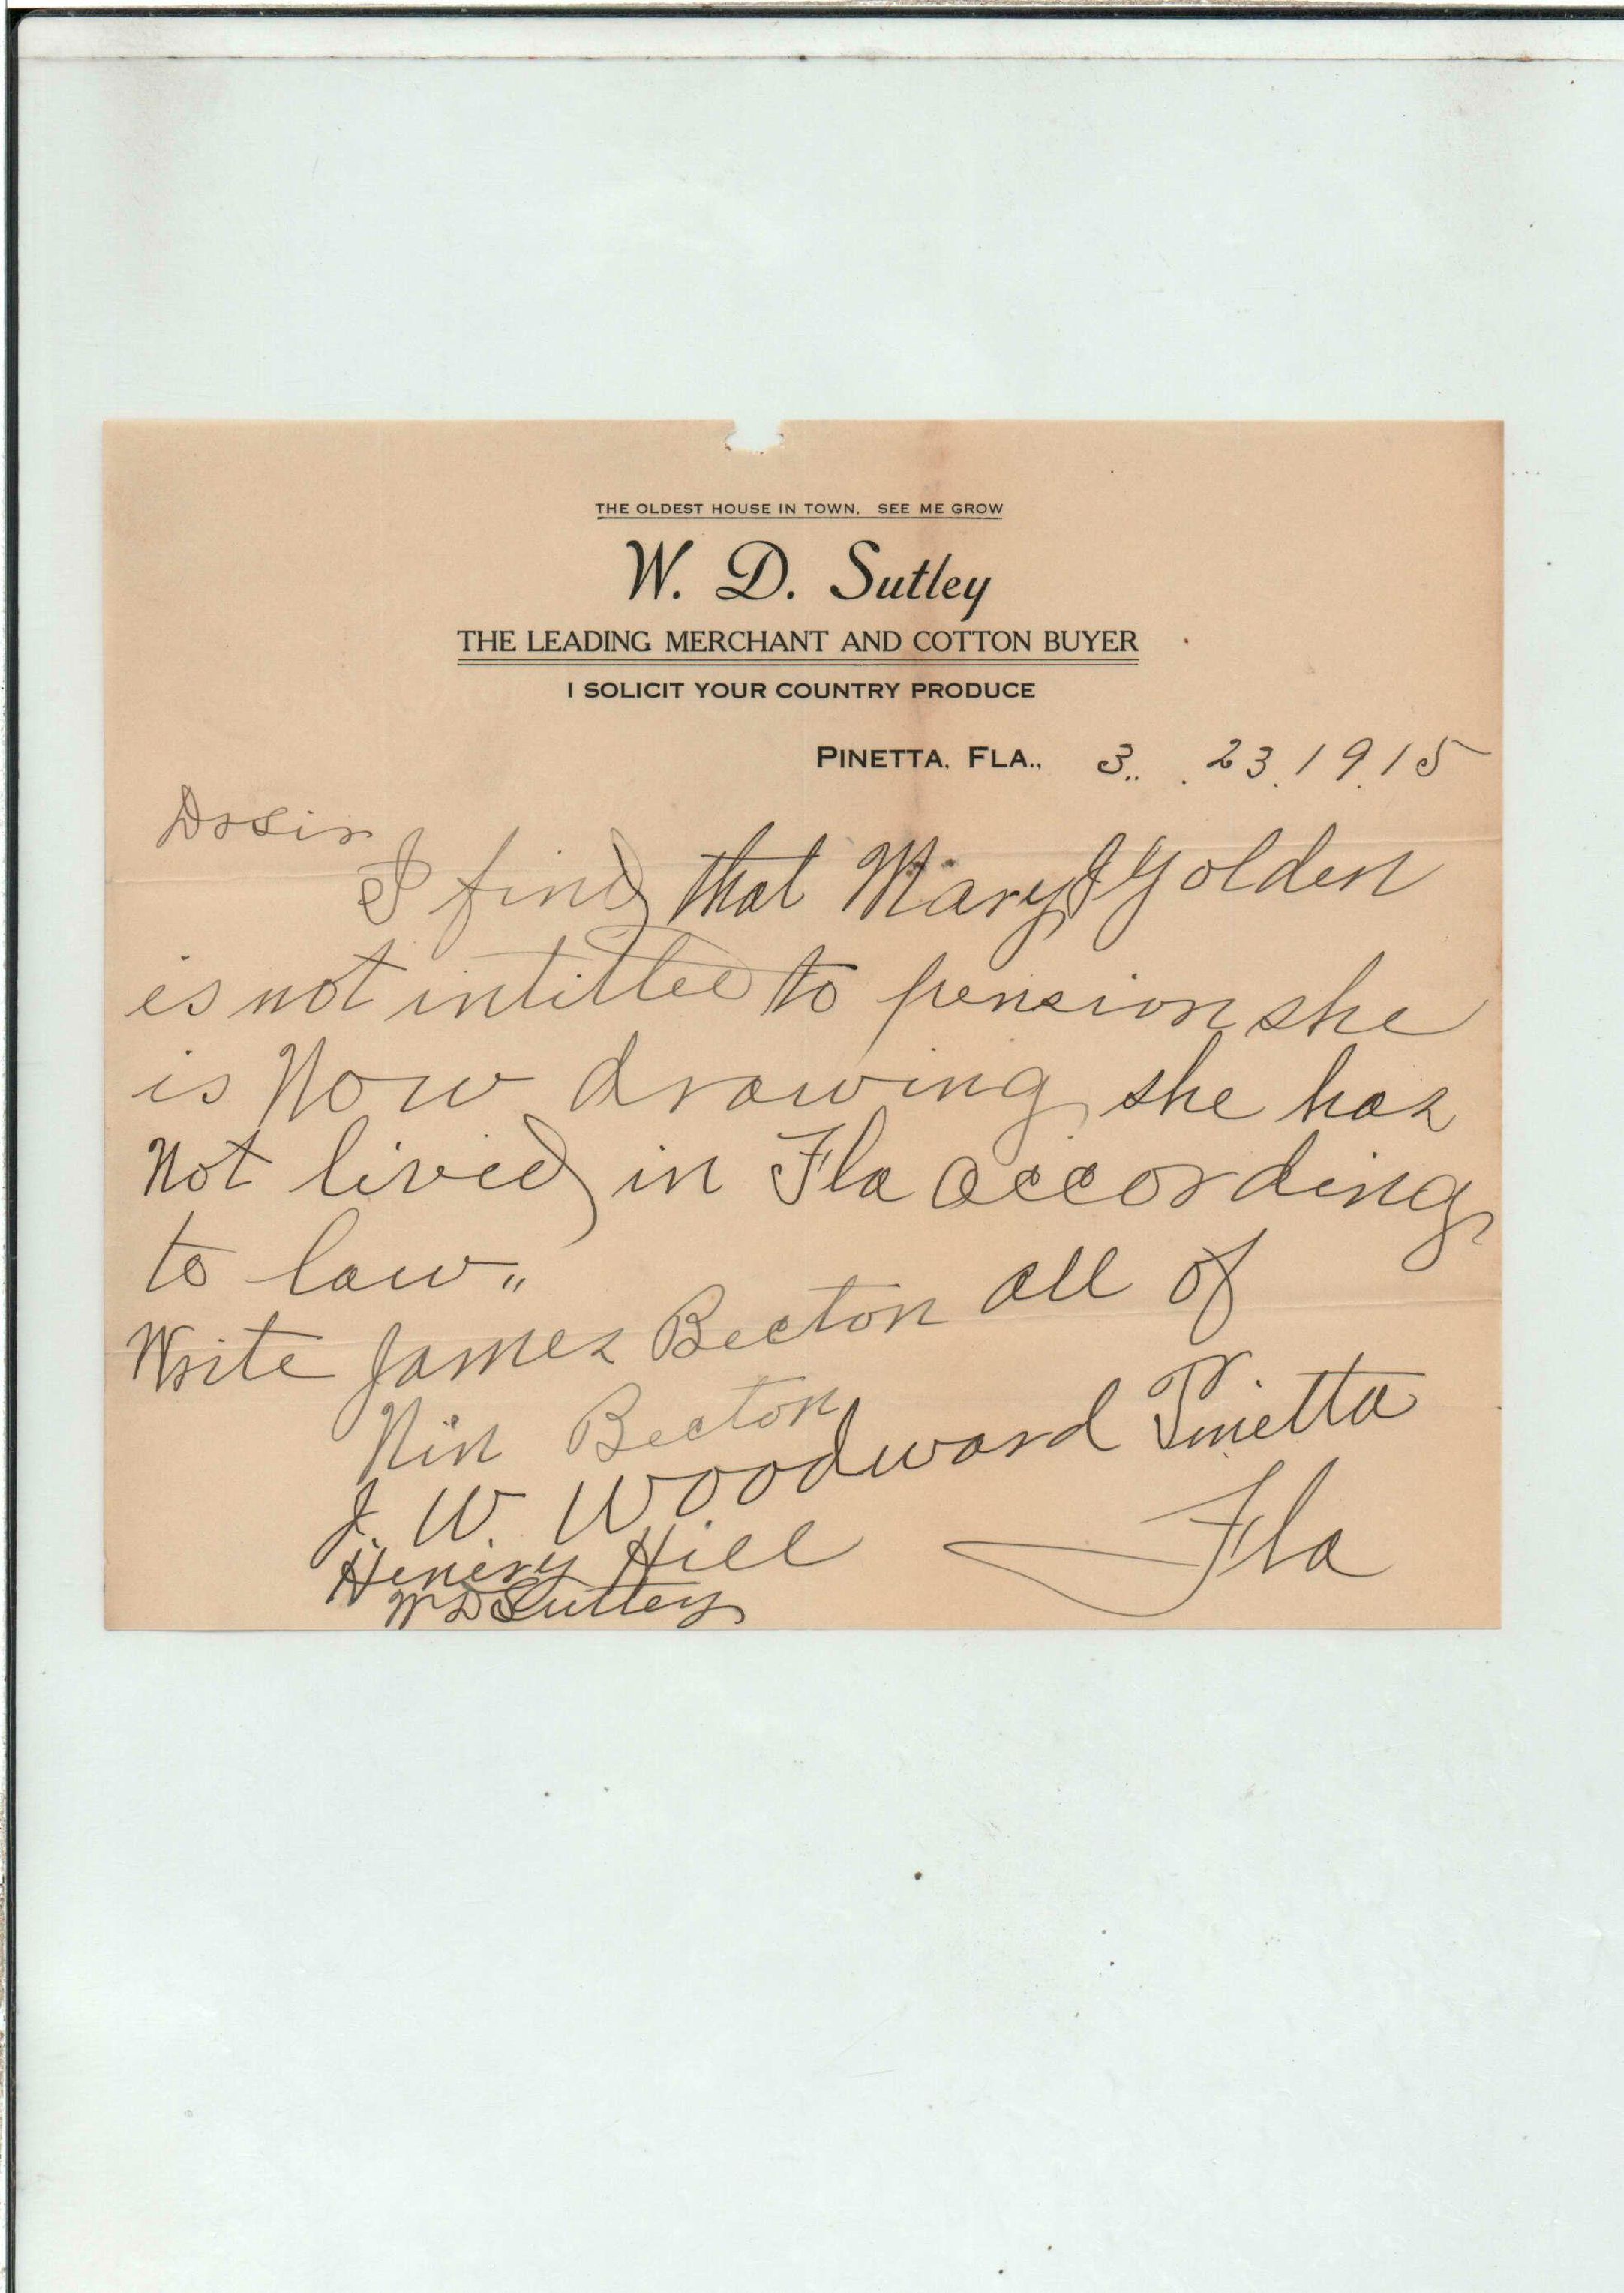 THE OLDEST HOUSE IN TOWN. SEE ME GROW
W. D. Sutley
THE LEADING MERCHANT AND COTTON BUYER
I SOLICIT YOUR COUNTRY PRODUCE
PINETTA, FLA., 3. 23. 1915
Dr Sir
I find that Mary J Golden
is not intitled to pension she
is Now drawing she has
Not lived in Fla according
to law"
Write James Becton all of
Nin Becton
J. W. Woodward Pinetta
Henery Hill Fla
W D Sutley